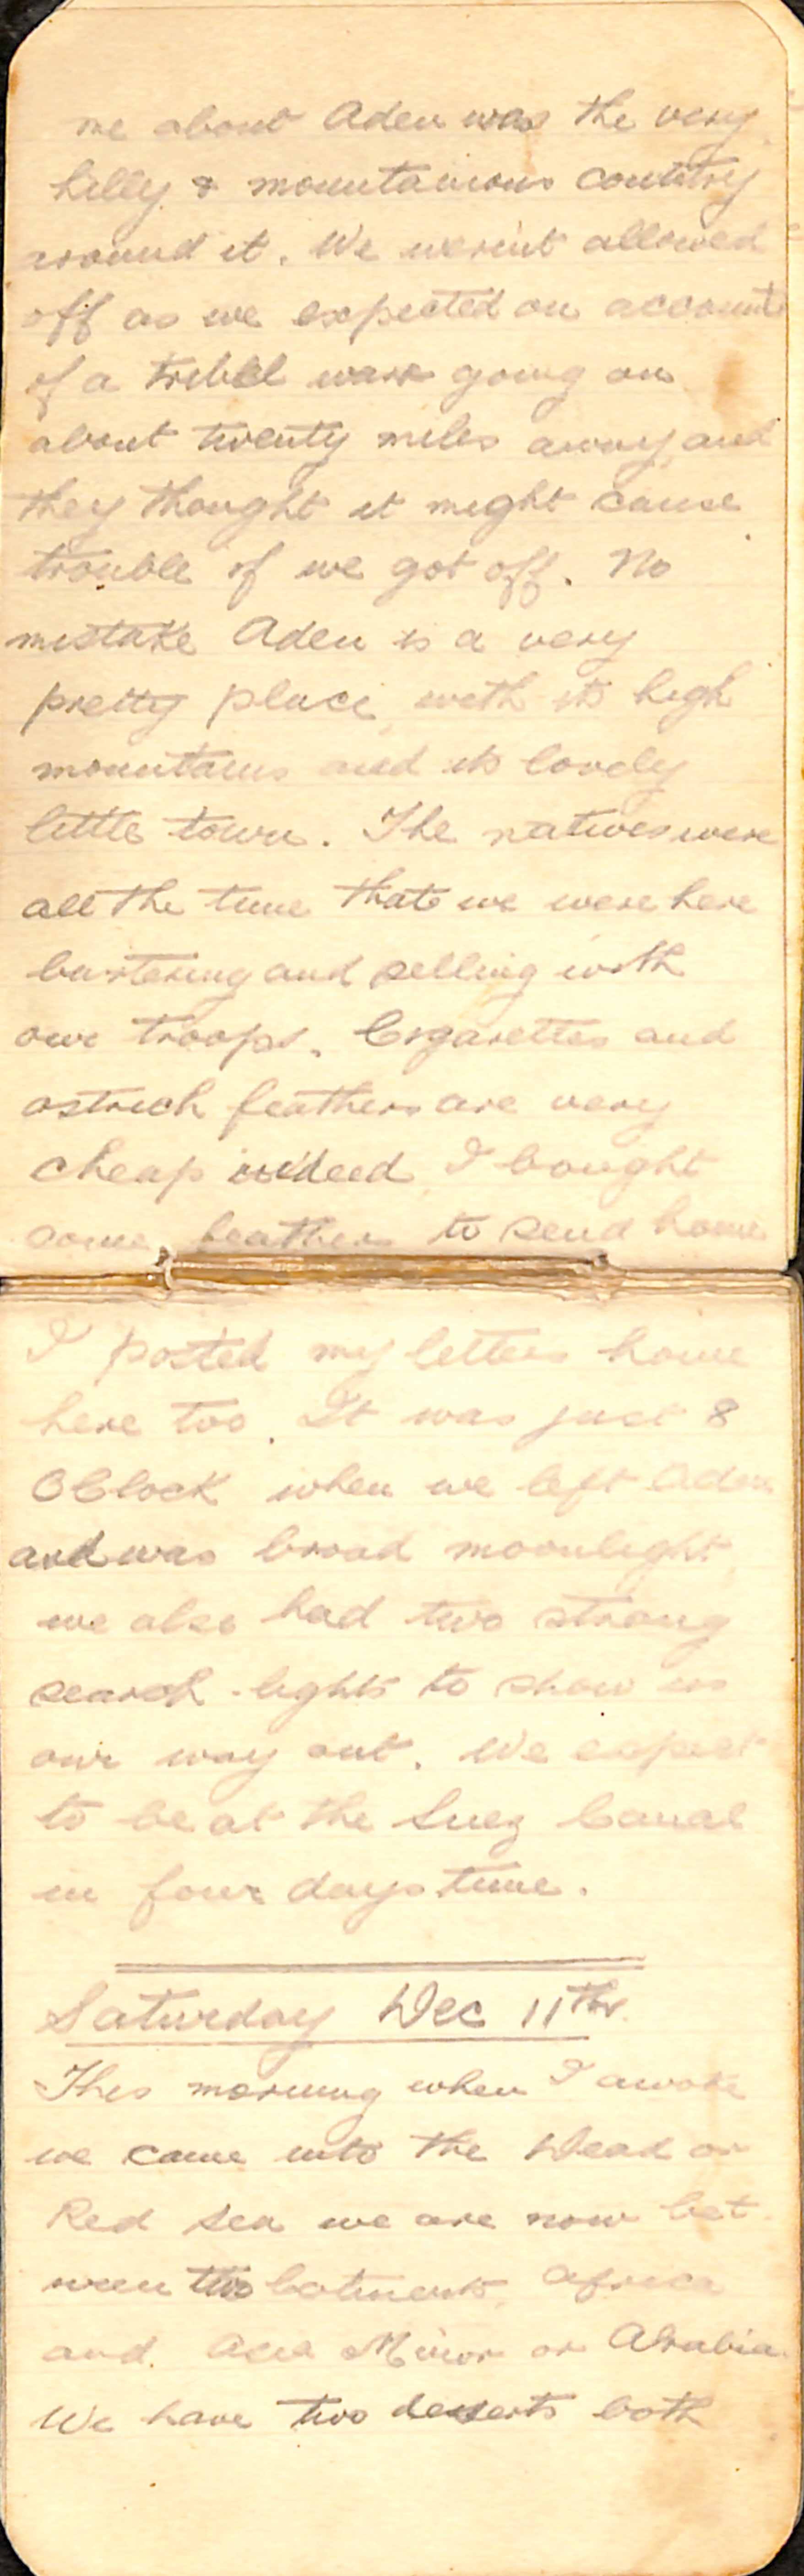 me about Aden was the very
hilly & mountainous country
around it. We werent allowed
off as we expected on account
of a tribal warr going on
about twenty miles away and
they thought it might cause
trouble if we got off. No
mistake Aden is a very
pretty place with its high
mountains and its lovely
little town. The natives were
all the time that we were here
bartering and selling with
our troops. Cigarettes and
ostrich feathers are very
cheap indeed I bought
some feathers to send home
I posted my letters home
here too. It was just 8
OClock when we left Aden
and was broad moonlight
we also had two strong
search-lights to show us
our way out. We expect
to be at the Suez Canal
in four days time.
Saturday Dec 11th
This morning when I awoke
we came into the Dead or
Red Sea we are now bet
ween two Africa
and Asia Minor or Arabia.
We have two desserts both